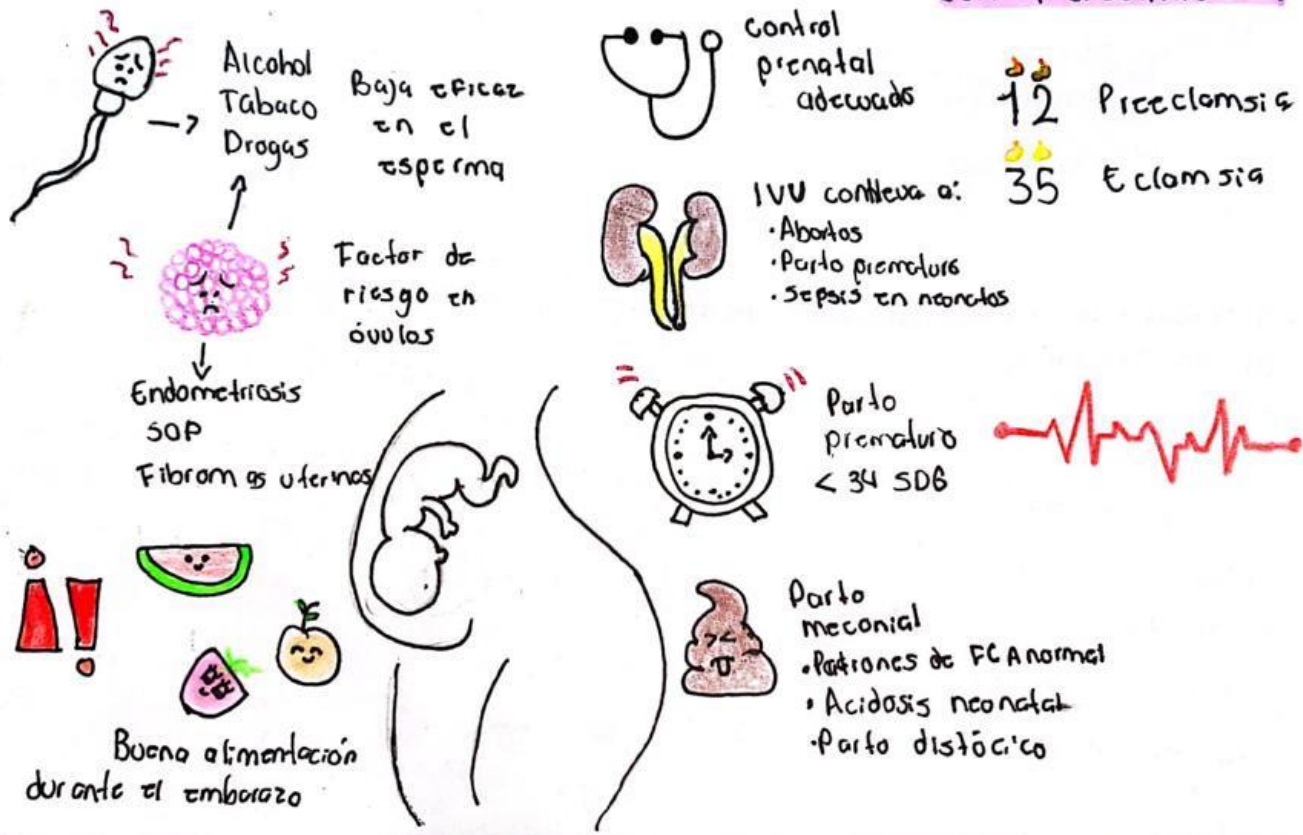 Alcohol
Tabaco
Drogas
Baja eficaz
en el
esperma
Factor de
riesgo en
óvulos
Endometriosis
SOP
Fibromas uterinos
Buena alimentación
durante el embarazo
control
prenatal
adecuado
12 Preeclamsia
35 Eclamsia
IVU conlleva a:
•Abortos
•Parto prematuro
•Sepsis en neonatos
Parto
prematuro
< 34 SDG
Parto
meconial
•Patrones de FC Anormal
•Acidosis neonatal
•Parto distócico